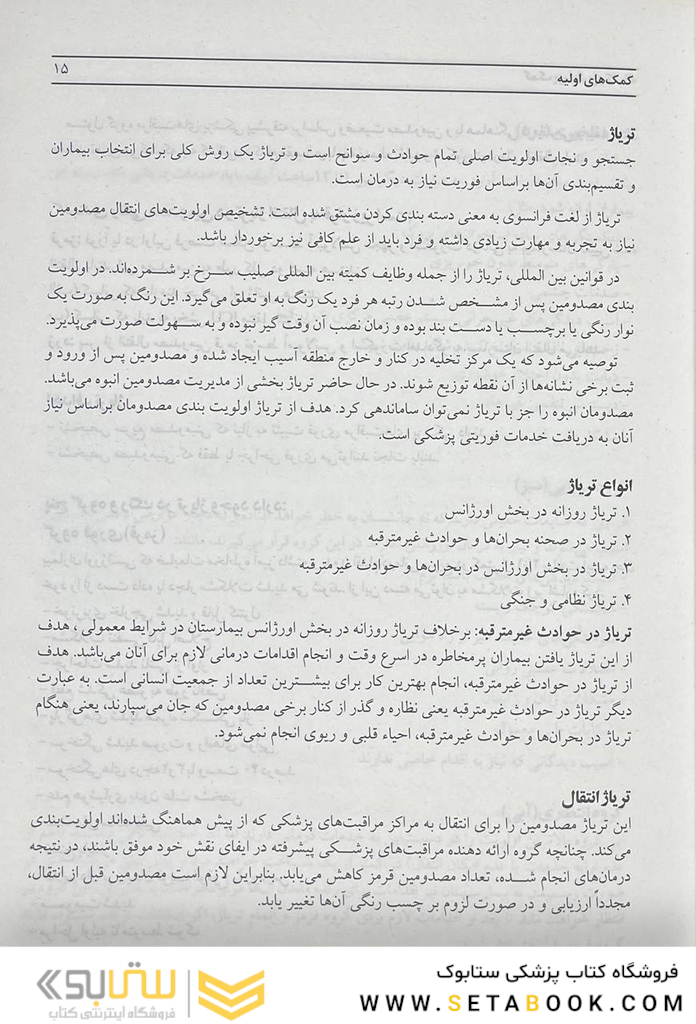 کمک‌های اولیه ۱۵
تریاژ
جستجو و نجات اولویت اصلی تمام حوادث و سوانح است و تریاژ یک روش کلی برای انتخاب بیماران
و تقسیم‌بندی آن‌ها براساس فوریت نیاز به درمان است.
تریاژ از لغت فرانسوی به معنی دسته بندی کردن مشتق شده است. تشخیص اولویت‌های انتقال مصدومین
نیاز به تجربه و مهارت زیادی داشته و فرد باید از علم کافی نیز برخوردار باشد.
در قوانین بین المللی، تریاژ را از جمله وظایف کمیته بین المللی صلیب سرخ بر شمرده‌اند. در اولویت
بندی مصدومین پس از مشخص شدن رتبه هر فرد یک رنگ به او تعلق می‌گیرد. این رنگ به صورت یک
نوار رنگی یا برچسب یا دست بند بوده و زمان نصب آن وقت گیر نبوده و به سهولت صورت می‌پذیرد.
توصیه می‌شود که یک مرکز تخلیه در کنار و خارج منطقه آسیب ایجاد شده و مصدومین پس از ورود و
ثبت برخی نشانه‌ها از آن نقطه توزیع شوند. در حال حاضر تریاژ بخشی از مدیریت مصدومین انبوه می‌باشد.
مصدومان انبوه را جز با تریاژ نمی‌توان ساماندهی کرد. هدف از تریاژ اولویت بندی مصدومان براساس نیاز
آنان به دریافت خدمات فوریتی پزشکی است.
انواع تریاژ
۱. تریاژ روزانه در بخش اورژانس
۲. تریاژ در صحنه بحران‌ها و حوادث غیرمترقبه
۳. تریاژ در بخش اورژانس در بحران‌ها و حوادث غیرمترقبه
۴. تریاژ نظامی و جنگی
تریاژ در حوادث غیرمترقبه: برخلاف تریاژ روزانه در بخش اورژانس بیمارستان در شرایط معمولی ، هدف
از این تریاژ یافتن بیماران پرمخاطره در اسرع وقت و انجام اقدامات درمانی لازم برای آنان می‌باشد. هدف
از تریاژ در حوادث غیرمترقبه، انجام بهترین کار برای بیشترین تعداد از جمعیت انسانی است. به عبارت
دیگر تریاژ در حوادث غیرمترقبه یعنی نظاره و گذر از کنار برخی مصدومین که جان می‌سپارند، یعنی هنگام
تریاژ در بحران‌ها و حوادث غیرمترقبه، احیاء قلبی و ریوی انجام نمی‌شود.
تریاژ انتقال
این تریاژ مصدومین را برای انتقال به مراکز مراقبت‌های پزشکی که از پیش هماهنگ شده‌اند اولویت‌بندی
می‌کند. چنانچه گروه ارائه دهنده مراقبت‌های پزشکی پیشرفته در ایفای نقش خود موفق باشند، در نتیجه
درمان‌های انجام شده، تعداد مصدومین قرمز کاهش می‌یابد. بنابراین لازم است مصدومین قبل از انتقال،
مجدداً ارزیابی و در صورت لزوم بر چسب رنگی آن‌ها تغییر یابد.
فروشگاه کتاب پزشکی ستابوک
WWW.SETABOOK.COM
ستابوک
فروشگاه اینترنتی کتاب